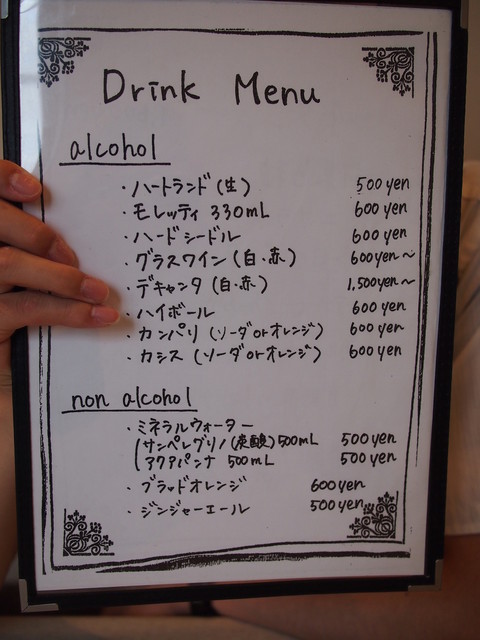 Drink Menu
alcohol
・ハートランド(生) 500yen
・モレッティ 330mL 600yen
・ハードシードル 600yen
・グラスワイン(白・赤) 600yen～
・デキャンタ(白・赤) 1,500yen～
・ハイボール 600yen
・カンパリ(ソーダorオレンジ) 600yen
・カシス(ソーダorオレンジ) 600yen
non alcohol
・ミネラルウォーター
(サンペレグリノ(炭酸)500mL 500yen
アクアパンナ 500mL 500yen
・ブラッドオレンジ 600yen
・ジンジャーエール 500yen